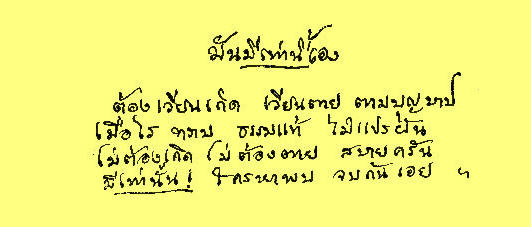 มันมีเท่านี้เอง
ต้องเวียนเกิด เวียนตาย ตามบุญบาป
เมื่อไร ทาบ ธรรมแท้ ไม่แปรผัน
ไม่ต้องเกิด ไม่ต้องตาย สบายครัน
มีเท่านั้น! ใครหาพบ จบกันเอย ฯ